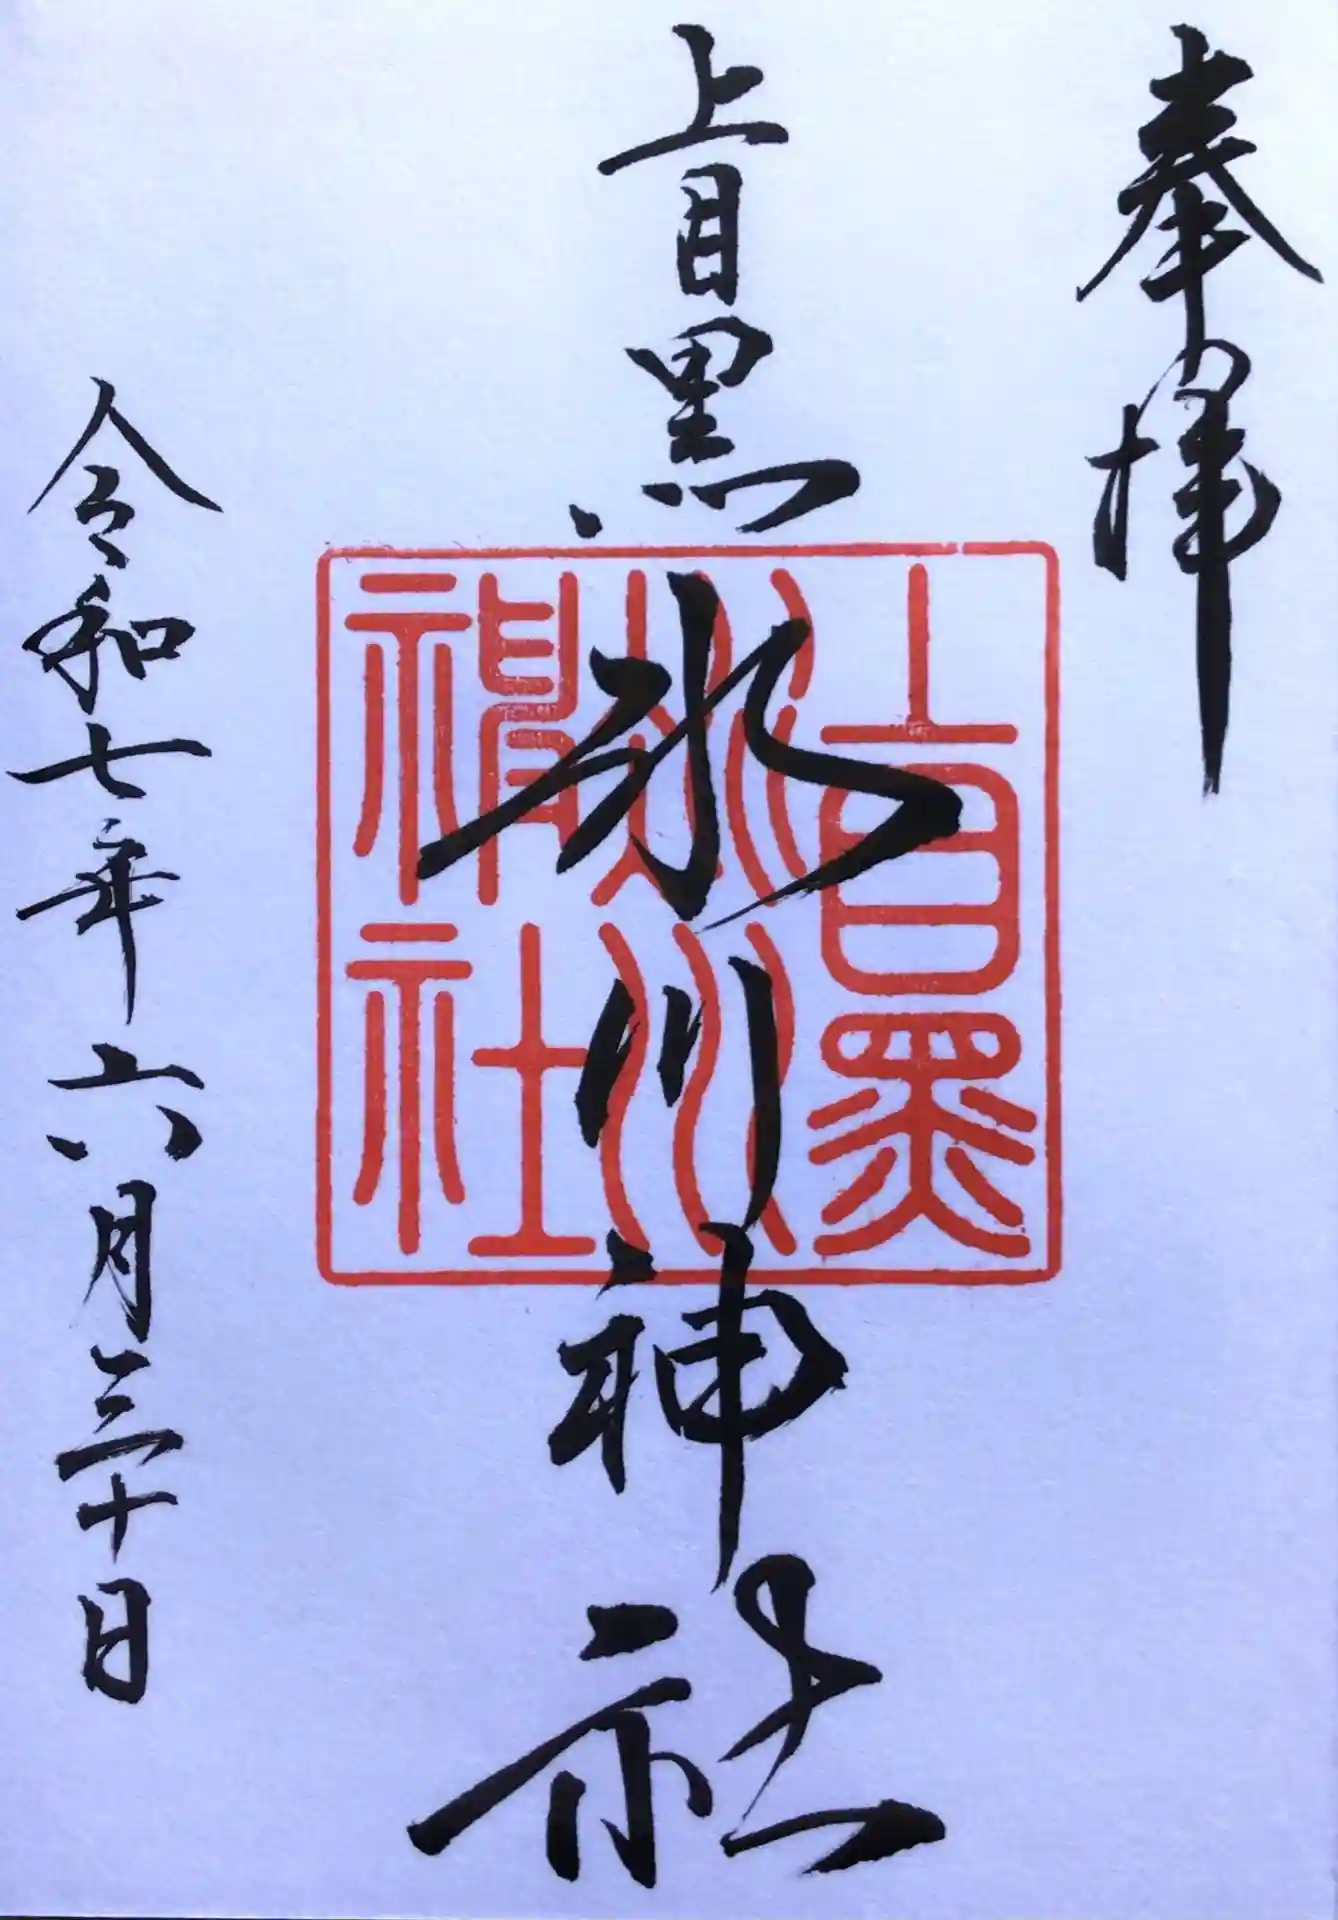 奉拝
上目黒
氷川神社
上目黒
氷川
神社
令和七年六月三十日